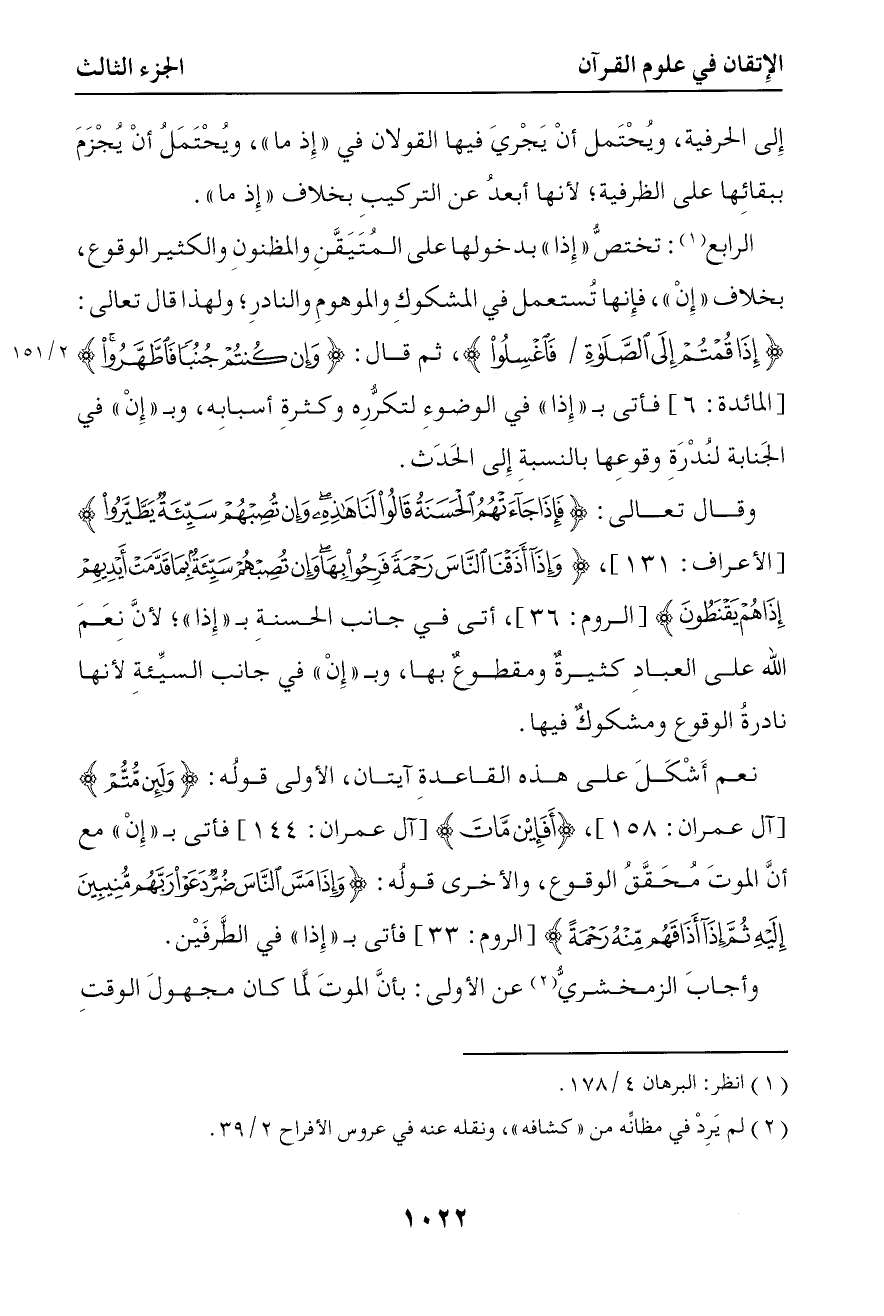 الإتقان في علوم القرآن
الجزء الثالث
إلى الحرفية، ويُحْتَمل أنْ يَجْريَ فيها القولان في «إذ ما»، ويُحْتَمَلُ أنْ يُجْزَمَ
ببقائِها على الظرفية؛ لأنها أبعدُ عن التركيبِ بخلاف «إذ ما».
الرابع(١): تختصُّ «إذا» بدخولها على المُتَيَقَّنِ والمظنونِ والكثيرِ الوقوع،
بخلاف «إنْ»، فإنها تُستعمل في المشكوكِ والموهومِ والنادرِ؛ ولهذا قال تعالى:
﴿ إِذَا قُمْتُمْ إِلَى ٱلصَّلَوٰةِ / فَٱغْسِلُوا۟ ﴾، ثم قال: ﴿ وَإِن كُنتُمْ جُنُبًا فَٱطَّهَّرُوا۟ ۚ ﴾ ١٥١/٢
[المائدة: ٦] فأتى بـ «إذا» في الوضوءِ لتكرُّرِه وكثرةِ أسبابِه، وبـ «إنْ» في
الجَنابة لنُدْرَةِ وقوعِها بالنسبةِ إلى الحَدَث.
وقال تعالى: ﴿ فَإِذَا جَآءَتْهُمُ ٱلْحَسَنَةُ قَالُوا۟ لَنَا هَٰذِهِۦ ۖ وَإِن تُصِبْهُمْ سَيِّئَةٌ يَطَّيَّرُوا۟ ﴾
[الأعراف: ١٣١]، ﴿ وَإِذَآ أَذَقْنَا ٱلنَّاسَ رَحْمَةً فَرِحُوا۟ بِهَا ۖ وَإِن تُصِبْهُمْ سَيِّئَةٌۢ بِمَا قَدَّمَتْ أَيْدِيهِمْ
إِذَا هُمْ يَقْنَطُونَ ﴾ [الروم: ٣٦]، أتى في جانب الحسنة بـ «إذا»؛ لأنَّ نِعَمَ
الله على العبادِ كثيرةٌ ومقطوعٌ بها، وبـ «إنْ» في جانب السيِّئة لأنها
نادرةُ الوقوع ومشكوكٌ فيها.
نعم أَشْكَلَ على هذه القاعدةِ آيتان، الأولى قولُه: ﴿ وَلَئِن مُّتُّمْ ﴾
[آل عمران: ١٥٨]، ﴿أَفَإِي۟ن مَّاتَ ﴾ [آل عمران: ١٤٤] فأتى بـ «إنْ» مع
أنَّ الموتَ مُحَقَّقُ الوقوع، والأخرى قولُه: ﴿ وَإِذَا مَسَّ ٱلنَّاسَ ضُرٌّ دَعَوْا۟ رَبَّهُم مُّنِيبِينَ
إِلَيْهِ ثُمَّ إِذَآ أَذَاقَهُم مِّنْهُ رَحْمَةً ﴾ [الروم: ٣٣] فأتى بـ «إذا» في الطَّرفَيْن.
وأجابَ الزمخشريُّ(٢) عن الأولى: بأنَّ الموتَ لمَّا كان مجهولَ الوقتِ
(١) انظر: البرهان ٤/ ١٧٨.
(٢) لم يَرِدْ في مظانِّه من «كشافه»، ونقله عنه في عروس الأفراح ٢/ ٣٩.
١٠٢٢